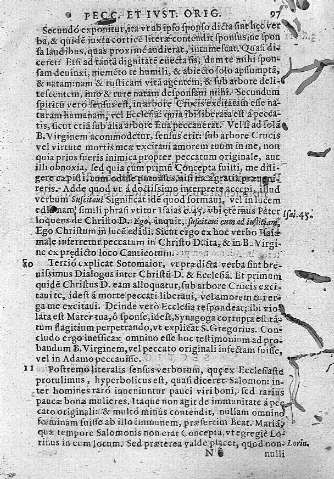 PECC. ET IVST. ORIG. 97
Secundo exponitur, ita vt ab ipso sponso dicta sint hæc verba,
& quidè iuxta corticè literæ contendit sponsus, ne sponsa
laudibus, quas proximè audierat, intumescat. Quasi diceret:
Etsi ad tantã dignitatè euecta sis, dum te mihi sponsam
deuinxi, memèto te humili, & abiecto solo assumptã,
& nata mnam & rusticam vitã agentem, & sub arbore delitescentem,
imò & iure naturæ desponsari mihi. Secundum
spiritũ verò sensus est, in arbore Crucis excitatam esse naturam
humanam, vel Ecclesia quia ibi liberata est à peccatis,
sicut etiã sub alia arbore fuit peccatrix. Vel si ad solã
B. Virginem accommodetur, sensus erit: sub arbore Crucis
vel virtute mortis meæ excitaui amorem tuum in me, non
quia prius fueris inimica propter peccatum originale, aut
illi obnoxia, sed quia cùm primũ Concepta fuisti, me diligere
Adde quod vt à doctissimo interprete accepi, illud
verbum Suscitaui Significat ide quod formaui, vel in lucem
simili phrasi vtitur Isaias c. 45. vbi æternus Pater
loquens de Christo D. Ego, inquit, suscitaui eum ad iustitiam, Isai. 45.
Ego Christum in lucè edidi. Sicut ergo ex hoc verbo Isaiæ
male inferretur peccatum in Christo D. ita, & in B. Virgine
ex prædicto loco Canticorum.
10 Tertio explicat Sotomaior, vt prædicta verba sint breuissimus
Dialogus inter Christũ D. & Ecclesiã. Et primum
quidè Christus D. eam alloquatur, sub arbore Crucis excitaui
te, idest à morte peccati liberaui, vel amorem tuũ erga
me excitaui. Deinde verò Ecclesia respondeat; ibi violata
est Mater tua, ô sponse, idest, Synagoga corrupta est
flagitium perpetrando, vt explicat S. Gregorius. Concludo
ergo inefficax omnino esse huc testimonium ad probandum
B. Virginem, vel peccato originali infectam fuisse,
vel in Adamo peccauisse.
11 Postremo literalis sensus verborum, quæ ex Ecclesiaste
protulimus, hyperbolicus est, quasi diceret Salomon: inter
homines raro inueniuntur pauci viri boni, sed rarius
paucæ bonæ mulieres. Itaque non agit de immunitate à peccato
originali: & multò minus contendit, nullam omnino
feminam fuisse ab illo immunem, præsertim Beat. Mariã,
quæ tempore Salomonis non erat Concepta, vt egregiè Lorinus Lorin.
in eum locum. Sed præterea valde placet, quod non
N nulli